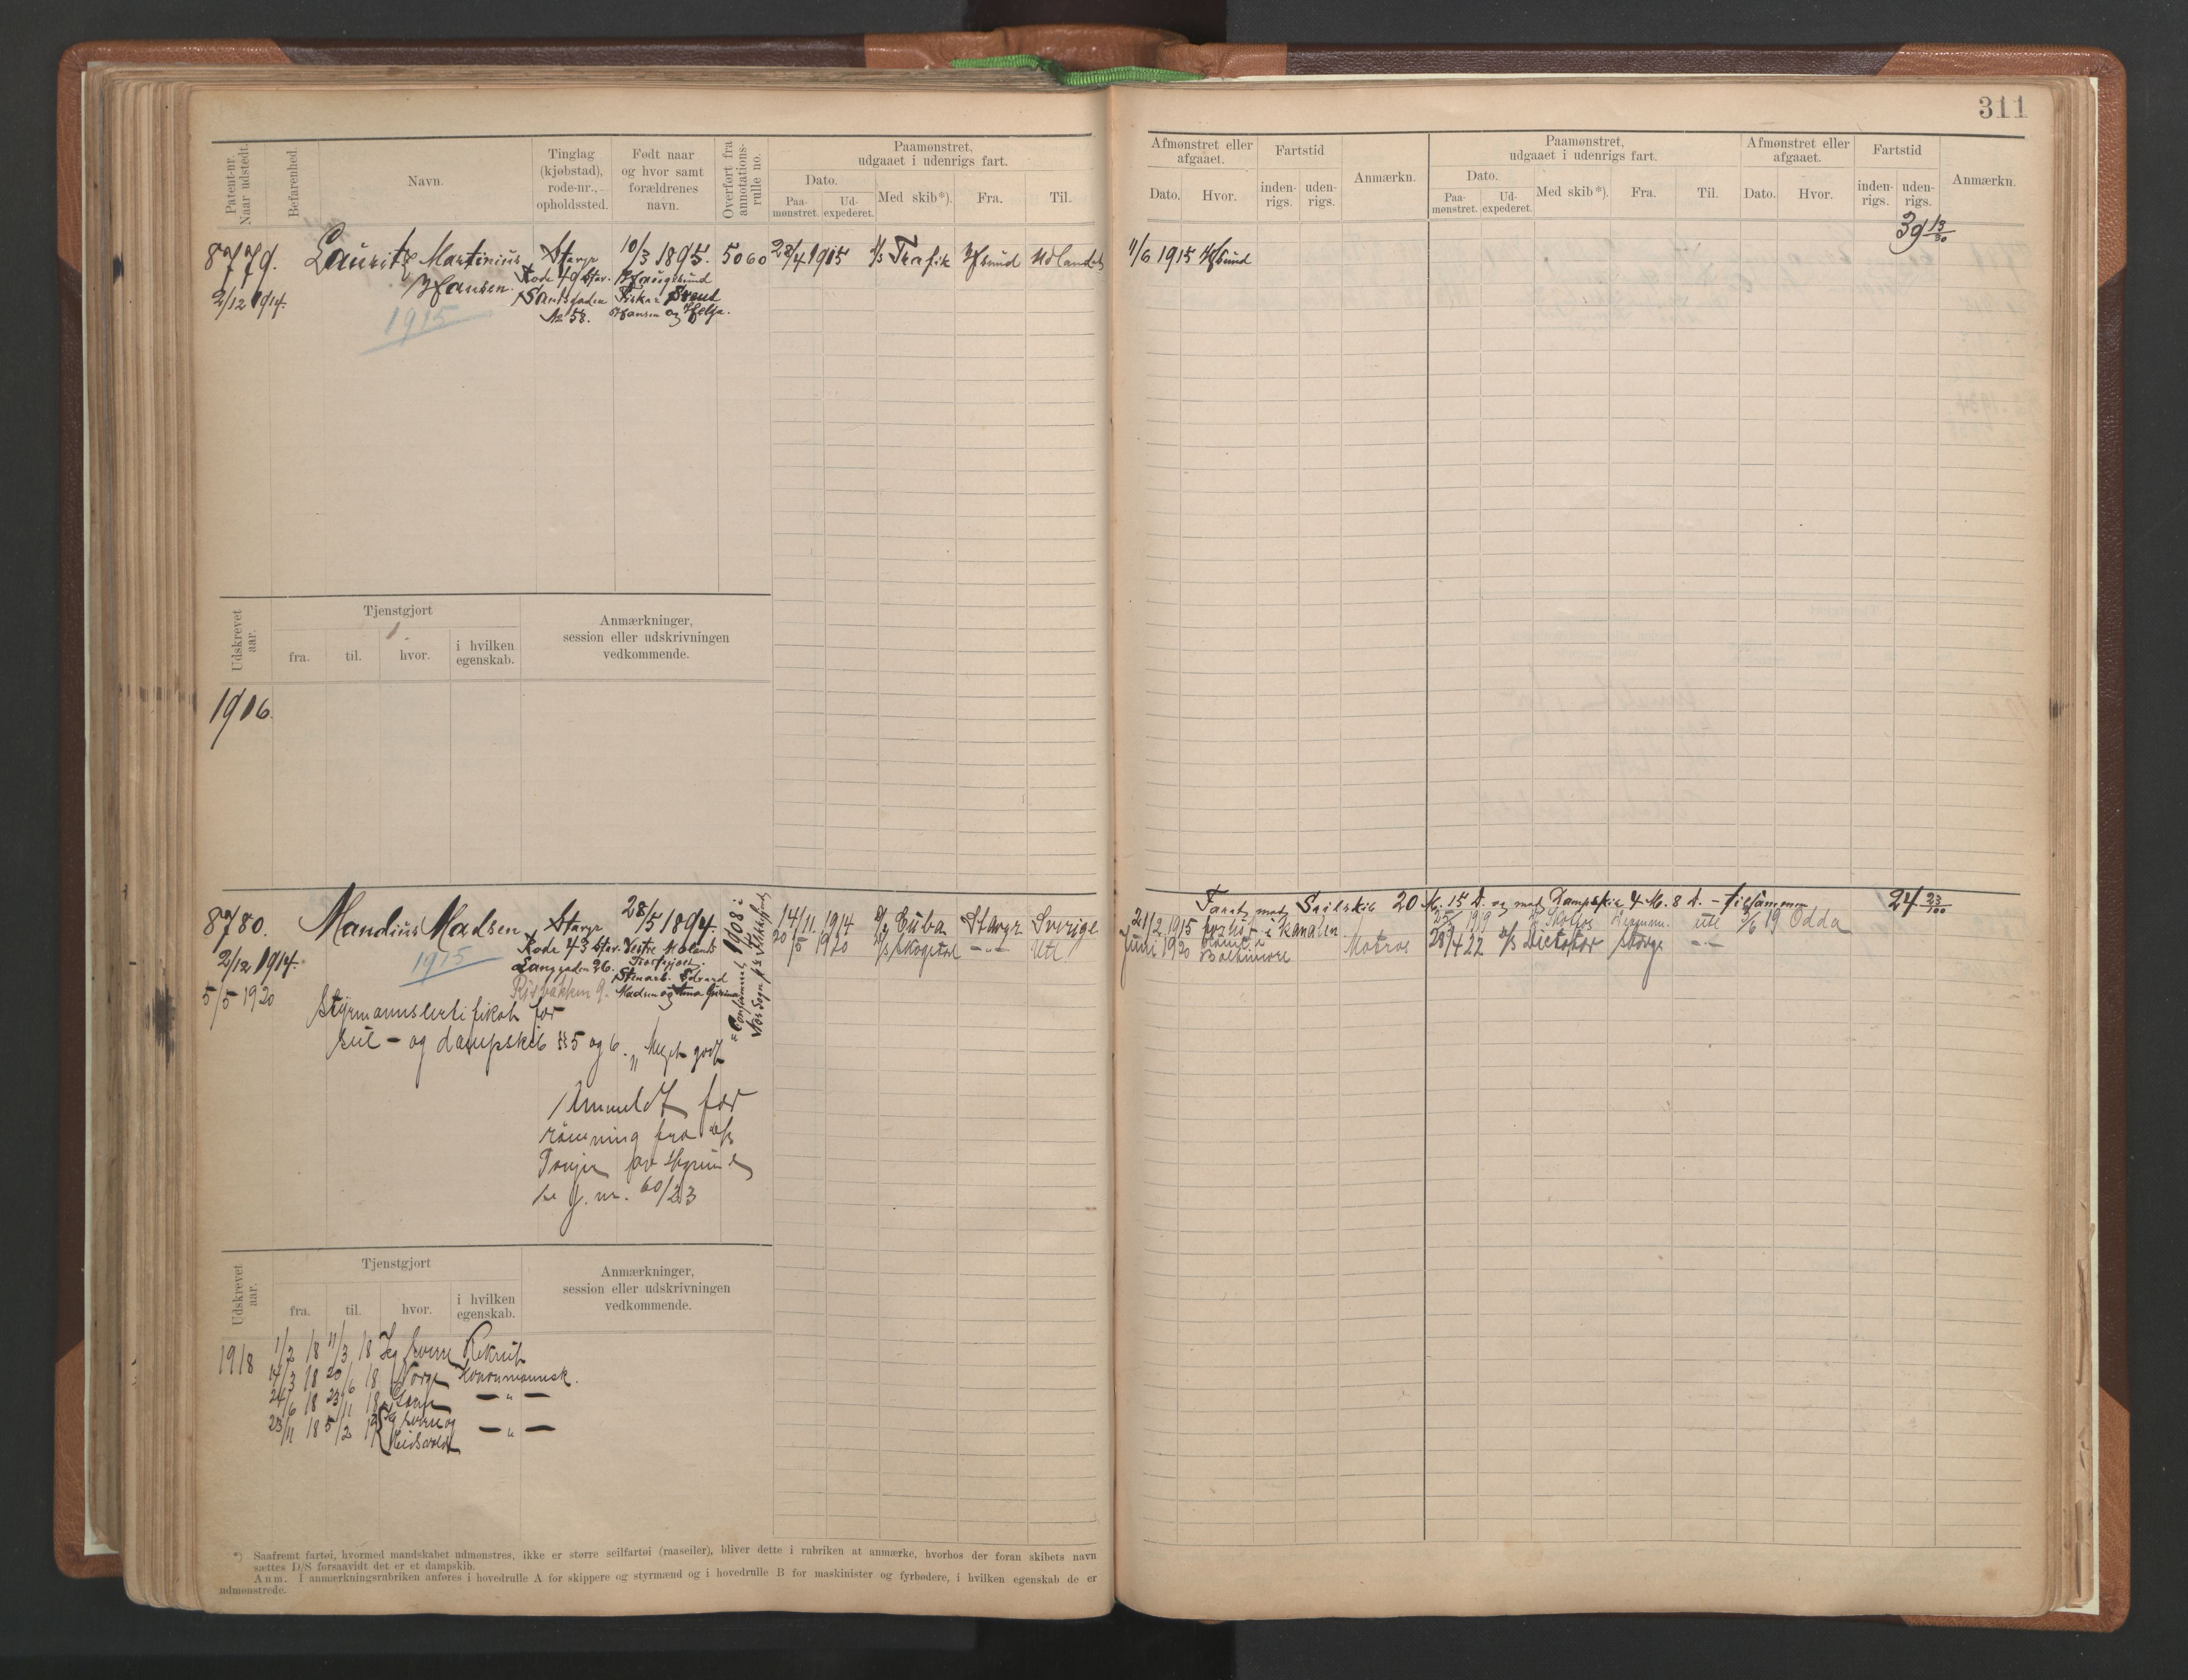 311
Patent-nr.
Naar udstedt.
Befarenhed.
Navn.
Tinglag
(kjøbstad),
rode-nr.,
opholdssted.
Født naar
og hvor samt
forældrenes
navn.
Overført fra
annotations-
rulle no.
Paamønstret,
udgaaet i udenrigs fart.
Dato.
Paa-
mønstret.
Ud-
expederet.
Med skib*).
Fra.
Til.
Afmønstret eller
afgaaet.
Dato.
Hvor.
Fartstid
inden-
rigs.
uden-
rigs.
Anmærkn.
Paamønstret,
udgaaet i udenrigs fart.
Dato.
Paa-
mønstret.
Ud-
expederet.
Med skib*).
Fra.
Til.
Afmønstret eller
afgaaet.
Dato.
Hvor.
Fartstid
inden-
rigs.
uden-
rigs.
Anmærkn.
39 13/30
8779.
2/12 1914.
Lauritz Martinius
Hansen.
1915
Stavgr
Rode 49 Stav.
Sandsgaden
№ 58.
10/3 1895.
Haugesund
Fisker Svend
Hansen og Helga.
5060
28/4 1915 D/S Trafik Hsund Udlandet
11/6 1915 Hsund
Udskrevet
aar.
Tjenstgjort
fra.
til.
hvor.
i hvilken
egenskab.
Anmærkninger,
session eller udskrivningen
vedkommende.
1916.
8780.
2/12 1914.
5/5 1920
Mandius Madsen
1915
Stavgr
Rode 43 Stav.
Langgaden 26.
28/5 1894.
Vestre Molands
Stenarb. Edvard
Madsen og
1908 i
14/11 1914 Cuba Stavgr Sverige
20/5 1920 D/S Skogstad -"- Utl
Faret med Seilskib 20 M. 15 D. og med Dampskib 4 M. 8 D. - tilsammen
24 23/100
21/2 1915 forliist i kanalen
1919 utl 3/6 19 Odda
Juni 1920 Baltimore
Matros
28/4 22 D/S Dictator Stavgr -"-
Styrmannscertifikat for
seil- og dampskib §§ 5 og 6. "Meget godt
Anmeldt for
rømning fra d/s
j. nr. 60/23
Udskrevet
aar.
Tjenstgjort
fra.
til.
hvor.
i hvilken
egenskab.
Anmærkninger,
session eller udskrivningen
vedkommende.
1918
1/2 18 11/3 18 Sverre Rekrut
14/3 18 20/6 18 Norge Kanonmannsk.
24/6 18 23/11 18 - " -
23/11 18 5/2 19 Sverre og - " -
Eidsvold
*) Saafremt fartøi, hvormed mandskabet udmønstres, ikke er større seilfartøi (raaseiler), bliver dette i rubriken at anmærke, hvorhos der foran skibets navn
sættes D/S forsaavidt det er et dampskib.
Anm. I anmærkningsrubriken anføres i hovedrulle A for skippere og styrmænd og i hovedrulle B for maskinister og fyrbødere, i hvilken egenskab de er
udmønstrede.